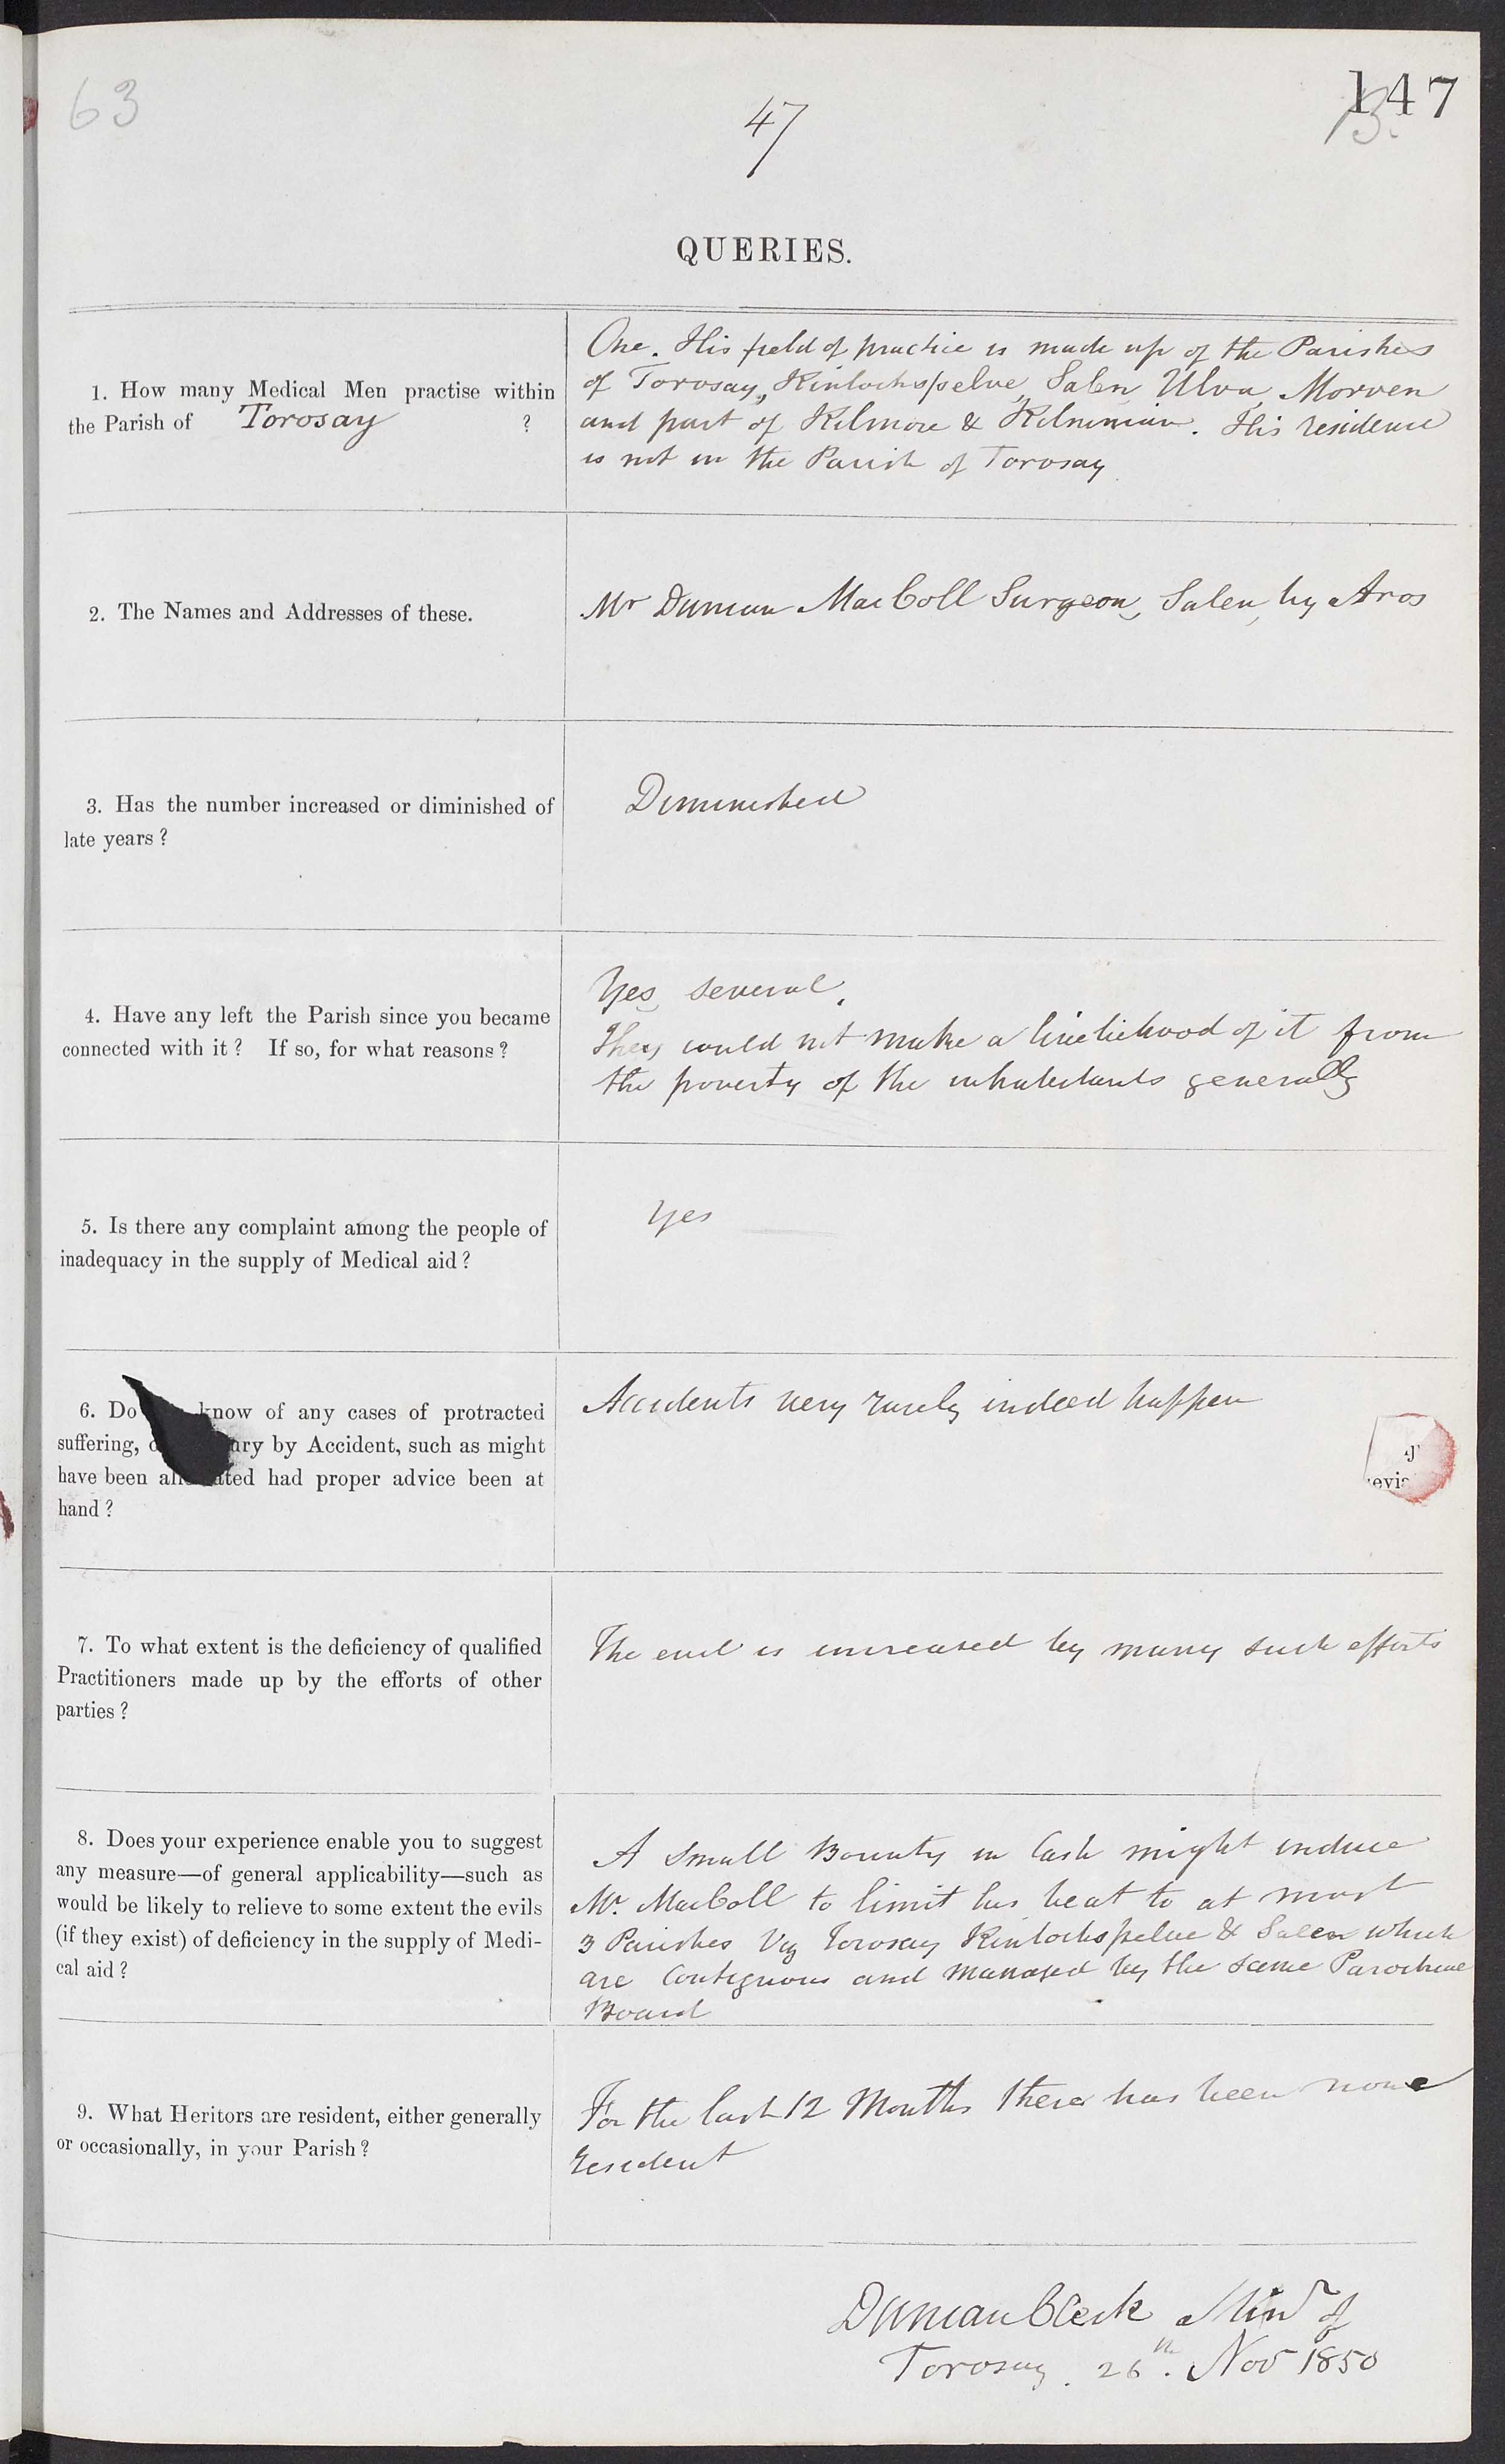 63
47
147
13.
QUERIES.
1. How many Medical Men practise within
the Parish of Torosay ?
One. His field of practice is made up of the Parishes
of Torosay, Kinlochspelve, Salen, Ulva, Morven
and part of Kilmore & Kilninian. His residence
is not in the Parish of Torosay
2. The Names and Addresses of these.
Mr Duncan MacColl Surgeon, Salen, by Aros
3. Has the number increased or diminished of
late years?
Diminished
4. Have any left the Parish since you became
connected with it? If so, for what reasons?
Yes, several.
They could not make a livelihood of it from
the poverty of the inhabitants generally
5. Is there any complaint among the people of
inadequacy in the supply of Medical aid?
Yes
6. Do know of any cases of protracted
suffering, ury by Accident, such as might
have been all ated had proper advice been at
hand?
Accidents very rarely indeed happen
evia
7. To what extent is the deficiency of qualified
Practitioners made up by the efforts of other
parties?
The evil is increased by many such efforts
8. Does your experience enable you to suggest
any measure—of general applicability—such as
would be likely to relieve to some extent the evils
(if they exist) of deficiency in the supply of Medi-
cal aid?
A small Bounty in Cash might induce
Mr. MacColl to limit his beat to at most
3 Parishes Viz Torosay Kinlochspelve & Salen which
are Contiguous and managed by the same Parochial
Board
9. What Heritors are resident, either generally
or occasionally, in your Parish?
For the last 12 Months there has been none
resident
Duncan Clerk Minr of
Torosay. 26th. Nov 1850